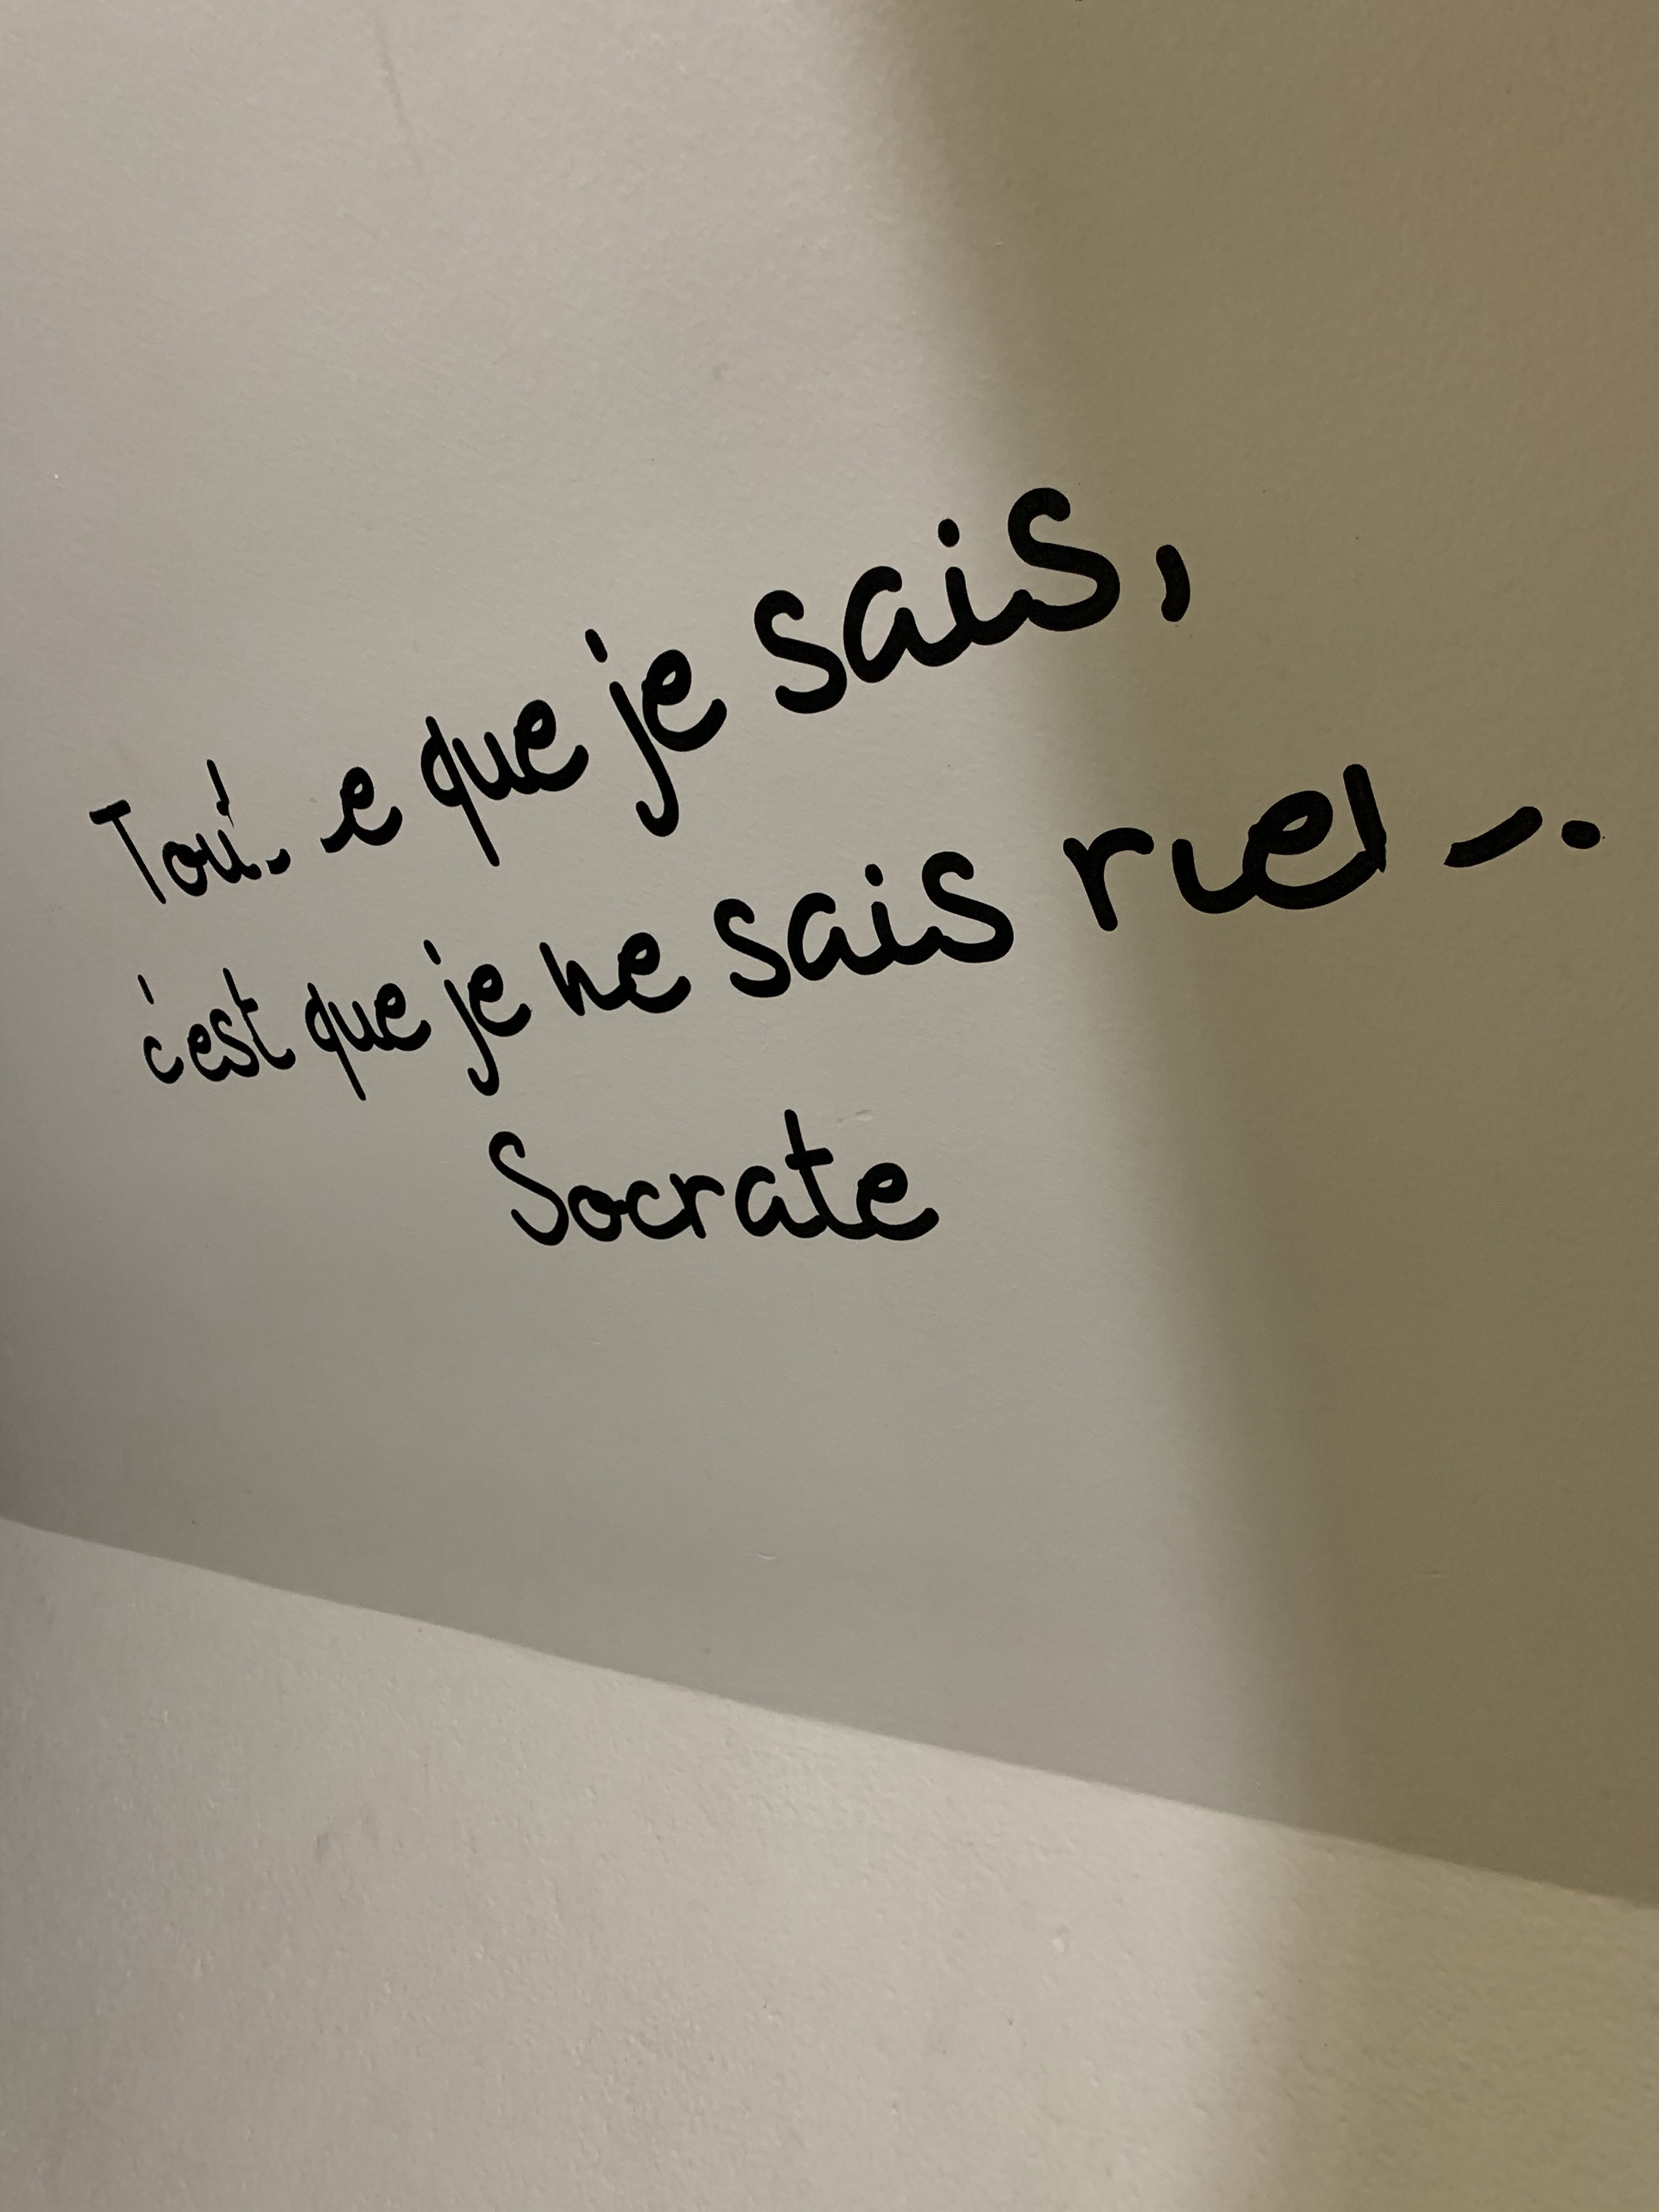 Tout ce que je sais,
c'est que je ne sais rien.
Socrate